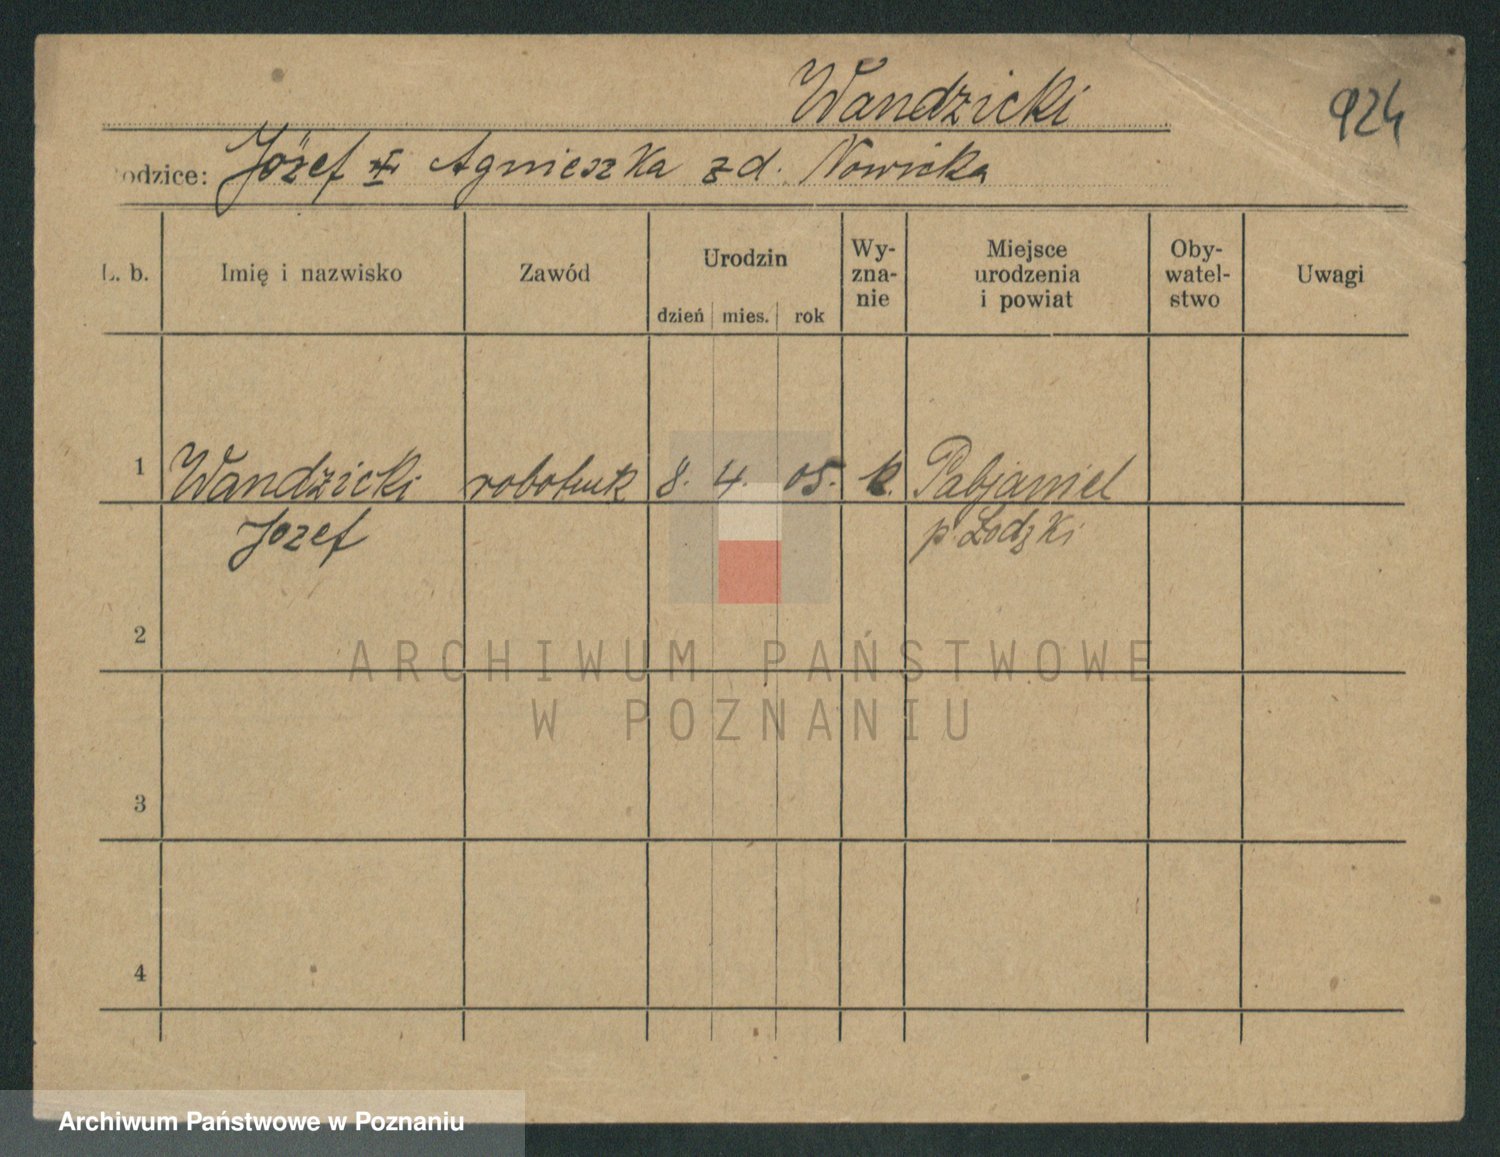 Wandzicki
924
odzice: Józef Agnieszka zd. Nowicka
L. b.
Imię i nazwisko
Zawód
Urodzin
dzień mies. rok
Wy-
zna-
nie
Miejsce
urodzenia
i powiat
Oby-
watel-
stwo
Uwagi
1 Wandzicki robotnik 8. 4. 05. k. Pabjaniel
Jozef p. Łodzki
2
3
4
ARCHIWUM PAŃSTWOWE
W POZNANIU
Archiwum Państwowe w Poznaniu